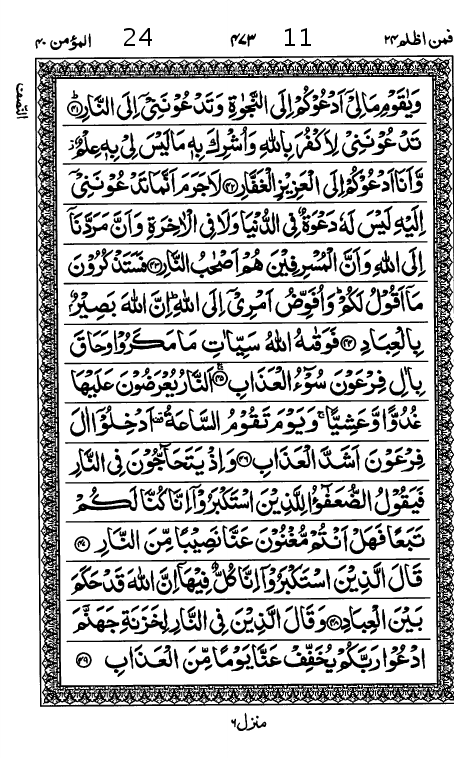 فمن اظلم ٢٤ 11 ٤٧٣ 24 المؤمن ٤٠
وَيٰقَوْمِ مَالِيْٓ اَدْعُوْكُمْ اِلَى النَّجٰوةِ وَتَدْعُوْنَنِيْٓ اِلَى النَّارِ ۝٤١
تَدْعُوْنَنِيْ لِاَكْفُرَ بِاللّٰهِ وَاُشْرِكَ بِهٖ مَالَيْسَ لِيْ بِهٖ عِلْمٌ
وَّاَنَا اَدْعُوْكُمْ اِلَى الْعَزِيْزِ الْغَفَّارِ ۝٤٢ لَاجَرَمَ اَنَّمَا تَدْعُوْنَنِيْٓ
اِلَيْهِ لَيْسَ لَهٗ دَعْوَةٌ فِي الدُّنْيَا وَلَا فِي الْاٰخِرَةِ وَاَنَّ مَرَدَّنَآ
اِلَى اللّٰهِ وَاَنَّ الْمُسْرِفِيْنَ هُمْ اَصْحٰبُ النَّارِ ۝٤٣ فَسَتَذْكُرُوْنَ
مَآ اَقُوْلُ لَكُمْ ؕ وَاُفَوِّضُ اَمْرِيْٓ اِلَى اللّٰهِ ؕ اِنَّ اللّٰهَ بَصِيْرٌۢ
بِالْعِبَادِ ۝٤٤ فَوَقٰىهُ اللّٰهُ سَيِّاٰتِ مَا مَكَرُوْا وَحَاقَ
بِاٰلِ فِرْعَوْنَ سُوْٓءُ الْعَذَابِ ۝٤٥ اَلنَّارُ يُعْرَضُوْنَ عَلَيْهَا
غُدُوًّا وَّعَشِيًّا ۚ وَيَوْمَ تَقُوْمُ السَّاعَةُ ۫ اَدْخِلُوْٓا اٰلَ
فِرْعَوْنَ اَشَدَّ الْعَذَابِ ۝٤٦ وَاِذْ يَتَحَآجُّوْنَ فِي النَّارِ
فَيَقُوْلُ الضُّعَفٰٓؤُا لِلَّذِيْنَ اسْتَكْبَرُوْٓا اِنَّا كُنَّا لَكُمْ
تَبَعًا فَهَلْ اَنْتُمْ مُّغْنُوْنَ عَنَّا نَصِيْبًا مِّنَ النَّارِ ۝٤٧
قَالَ الَّذِيْنَ اسْتَكْبَرُوْٓا اِنَّا كُلٌّ فِيْهَآ ۙ اِنَّ اللّٰهَ قَدْ حَكَمَ
بَيْنَ الْعِبَادِ ۝٤٨ وَقَالَ الَّذِيْنَ فِي النَّارِ لِخَزَنَةِ جَهَنَّمَ
ادْعُوْا رَبَّكُمْ يُخَفِّفْ عَنَّا يَوْمًا مِّنَ الْعَذَابِ ۝٤٩
منزل ٦